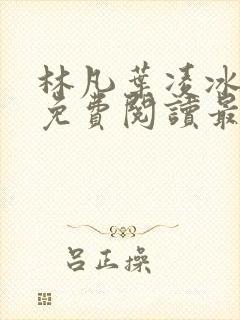 林凡葉凌冰
免費閱讀最
呂正操